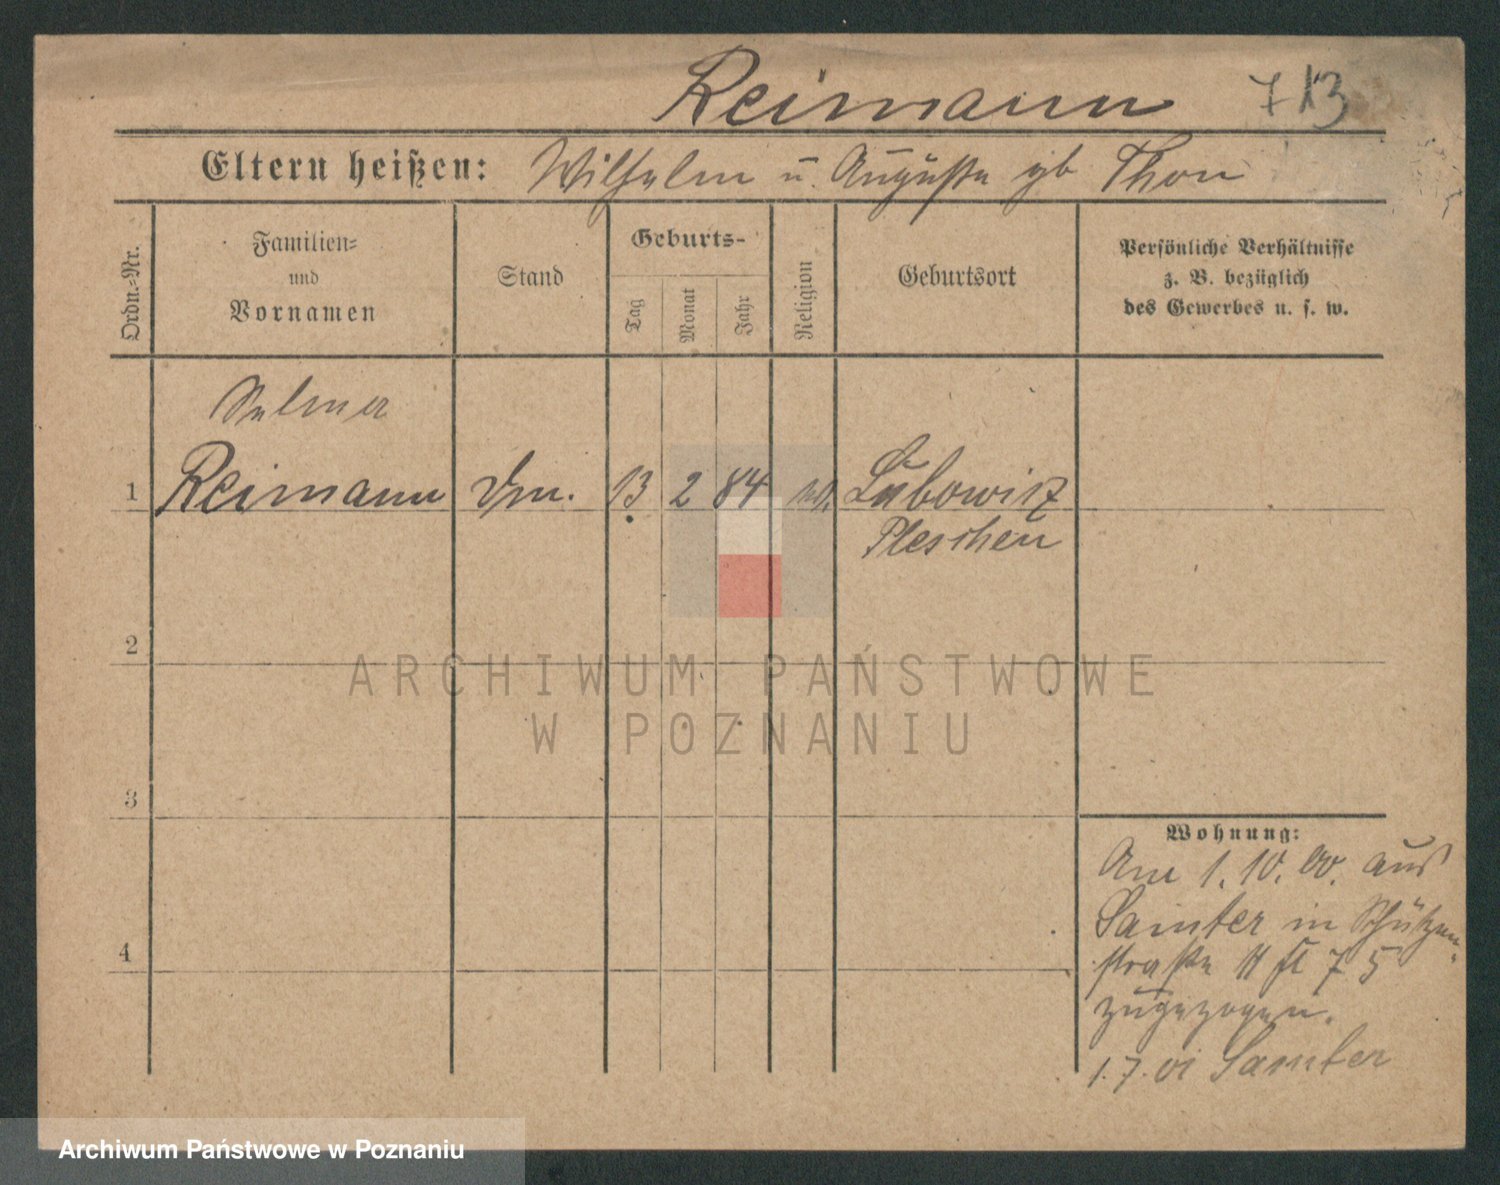 Reimann 713
Eltern heißen: Wilhelm u. Auguste gb Thon
Ordn.-Nr.
Familien-
und
Vornamen
Stand
Geburts-
Tag
Monat
Jahr
Religion
Geburtsort
Persönliche Verhältnisse
z. B. bezüglich
des Gewerbes u. s. w.
Selma
1 Reimann 13 2 84 Lubowitz
Pleschen
2
3
4
Wohnung:
Am 1. 10. 00. aus
Samter in Schützen-
straße 75
zugezogen.
1. 7. 01 Samter
ARCHIWUM PAŃSTWOWE
W POZNANIU
Archiwum Państwowe w Poznaniu